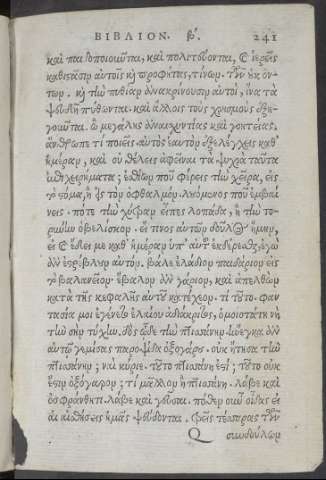 ΒΙΒΛΙΟΝ. β΄. 241
καὶ παιδοποιοῦνται, καὶ πολιτεύονται, καὶ ἱερεῖς
καθιστᾶσιν αὑτοὺς καὶ προφήτας, τίνων. τῶν οὐκ ὄν-
των. καὶ τὴν πυθίαν ἀνακρίνουσιν αὐτοὶ, ἵνα τὰ
ψευδῆ πύθωνται. καὶ ἄλλοις τοὺς χρησμοὺς ἐξη-
γοῦνται. ὦ μεγάλης ἀναισχυντίας καὶ γοητείας.
ἄνθρωπε τί ποιεῖς. αὐτὸς ἑαυτὸν ἐξελέγχεις καθ'
ἡμέραν, καὶ οὐ θέλεις ἀφεῖναι τὰ ψυχρὰ ταῦτα
ἐπιχειρήματα; ἐσθίων ποῦ φέρεις τὴν χεῖρα, εἰς
τὸ στόμα, ἢ εἰς τὸν ὀφθαλμόν. λουόμενος ποῦ ἐμβαί-
νεις. πότε τὴν χύτραν εἶπες λοπάδα, ἢ τὴν το-
ρύνην ὀβελίσκον. εἴ τινος αὐτῶν δοῦλος ἤμην,
εἰ καὶ ἔδει με καθ' ἡμέραν ὑπ' αὐτοῦ ἐκδέρεσθαι, ἐγὼ
ἂν ἐστρέβλουν αὐτόν. βάλε ἐλάδιον παιδάριον εἰς
τὸ βαλανεῖον. ἔβαλον ἂν γάριον, καὶ ἀπελθὼν
κατὰ τῆς κεφαλῆς αὐτοῦ κατέχεον. τί τοῦτο. φαν
τασία μοι ἐγένετο ἐλαίου ἀδιάκριτος, ὁμοιοτάτη νὴ
τὴν σὴν τύχην. δὸς ὧδε τὴν πτισάνην. ἤνεγκα ἂν
αὐτῷ γεμίσας παροψίδα ὀξογάρου. οὐκ ᾔτησα τὴν
πτισάνην; ναὶ κύριε. τοῦτο πτισάνη ἐστί; τοῦτο οὐκ
ἔστιν ὀξόγαρον; τί μᾶλλον ἢ πτισάνη. λάβε καὶ
ὀσφράνθητι. λάβε καὶ γεῦσαι. πόθεν οὖν οἶδας εἰ
αἱ αἰσθήσεις ἡμᾶς ψεύδονται. τρεῖς τέσσαρας τῶν
Q συνδούλων